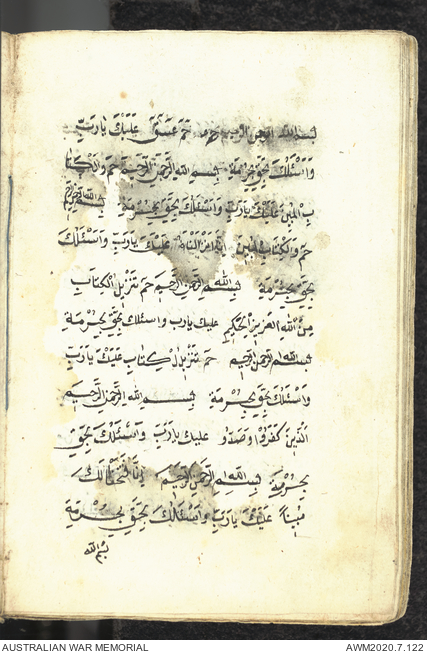 بسم الله الرحمن الرحيم حم حم عسق عليك يا رب
وَاَسْئَلُكَ بِحَقِّ حُرْمَةِ بِسْمِ اللهِ الرَّحْمٰنِ الرَّحِيمِ حم والكتا
ب المبين عليك يا رب واسئلك بحق بحرمة بسم الله الرحمن الرحيم
حم والكتاب المبين انا انزلناه عليك يا رب واسئلك
بحق بحرمة بسم الله الرحمن الرحيم حم تنزيل الكتاب
من الله العزيز الحكيم عليك يا رب واسئلك بحق بحرمة
بسم الله الرحمن الرحيم حم تنزيل الكتاب عليك يا رب
واسئلك بحق بحرمة بسم الله الرحمن الرحيم
الذين كفروا وصدوا عليك يا رب واسئلك بحق
بحرمة بسم الله الرحمن الرحيم انا فتحنا لك
مبينا عليك يا رب واسئلك بحق بحرمة
بسم الله
AUSTRALIAN WAR MEMORIAL
AWM2020.7.122